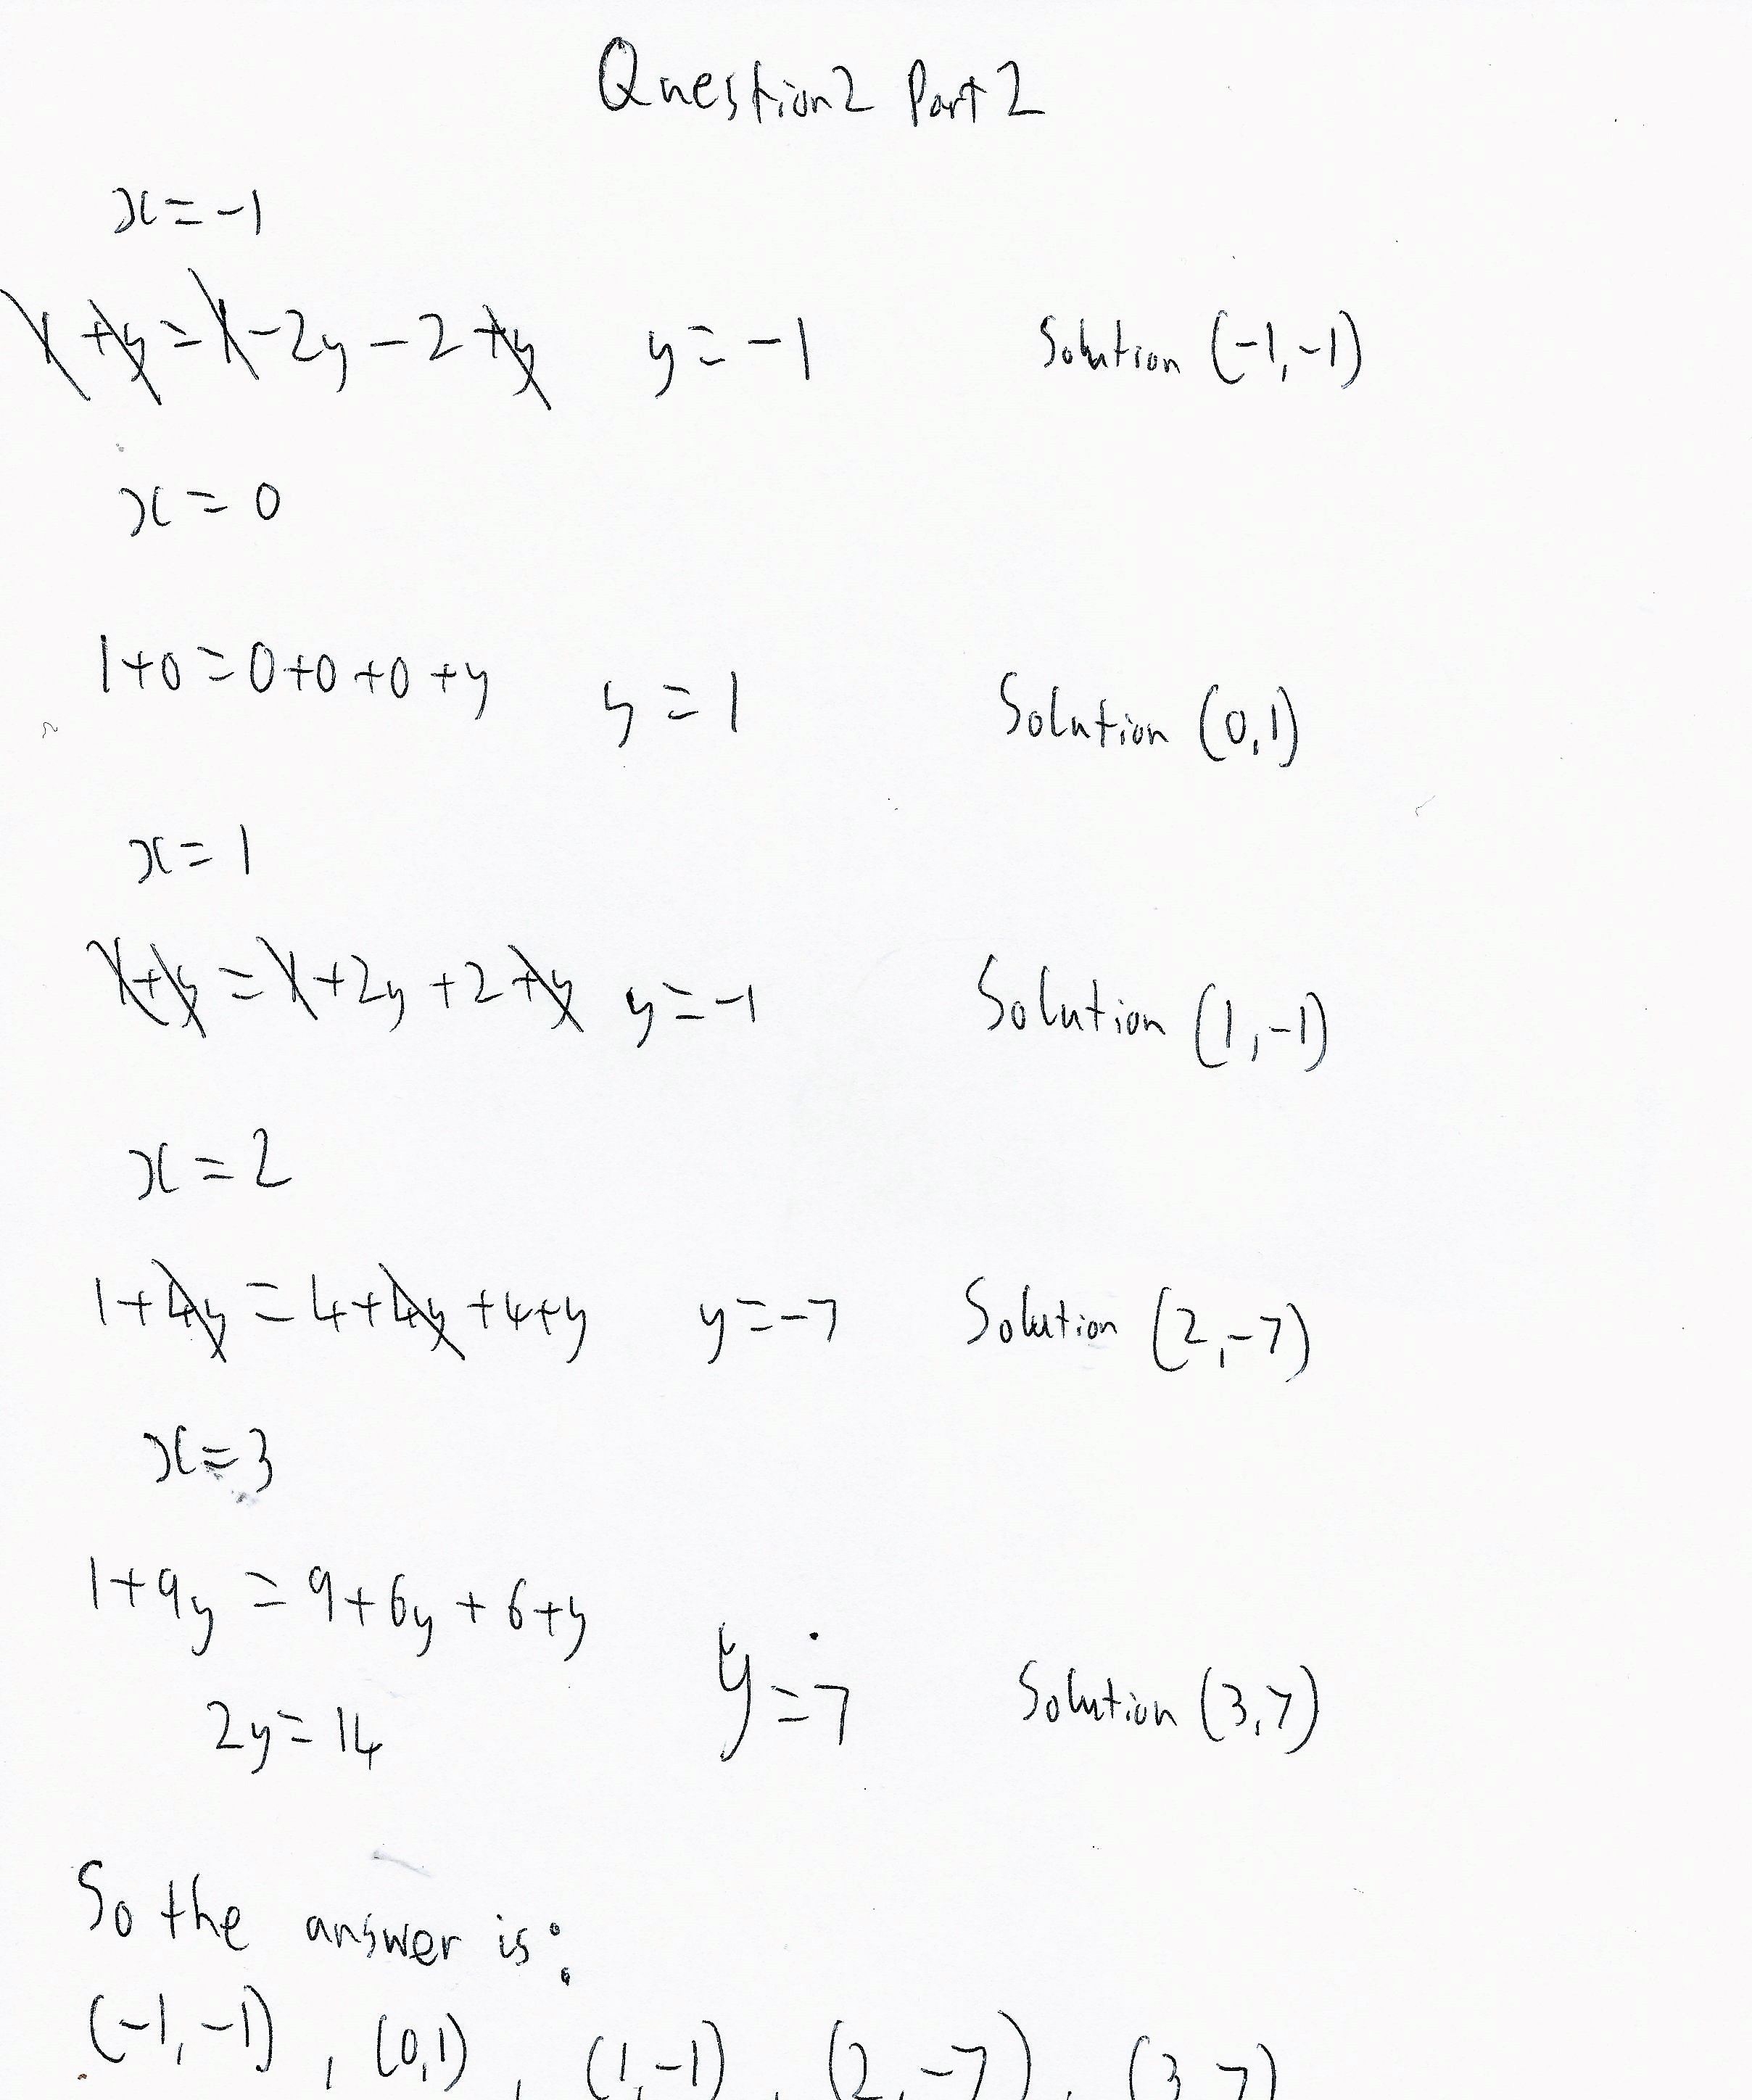 Question 2 Part 2
x=-1
1+y=1-2y-2+y y=-1 Solution (-1,-1)
x=0
1+0=0+0+0+y y=1 Solution (0,1)
x=1
1+y=1+2y+2+y y=-1 Solution (1,-1)
x=2
1+4y=4+4y+4+y y=-7 Solution (2,-7)
x=3
1+9y=9+6y+6+y
2y=14 y=7 Solution (3,7)
So the answer is:
(-1,-1), (0,1), (1,-1), (2,-7), (3,7)